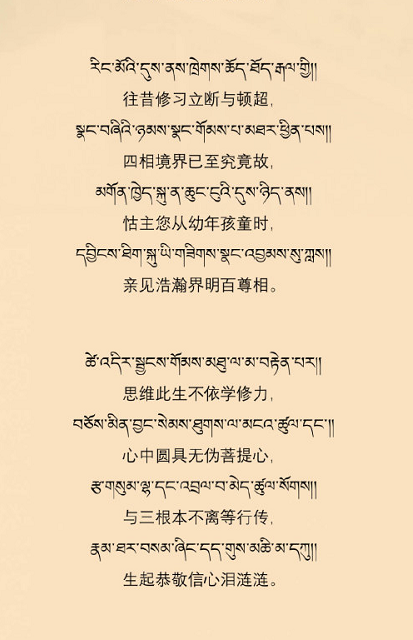 རིང་མོའི་དུས་ནས་ཁྲེགས་ཆོད་ཐོད་རྒལ་གྱི།།
往昔修习立断与顿超，
སྣང་བཞིའི་ཉམས་སྣང་གོམས་པ་མཐར་ཕྱིན་པས།།
四相境界已至究竟故，
མགོན་ཁྱེད་སྐུ་ན་ཆུང་ངུའི་དུས་ཉིད་ནས།།
怙主您从幼年孩童时，
དབྱིངས་ཐིག་སྐུ་ཡི་གཟིགས་སྣང་འབྱམས་སུ་ཀླས།།
亲见浩瀚界明百尊相。
ཚེ་འདིར་སྦྱངས་གོམས་མཐུ་ལ་མ་བརྟེན་པར།།
思维此生不依学修力，
བཅོས་མིན་བྱང་སེམས་ཐུགས་ལ་མངའ་ཚུལ་དང་།།
心中圆具无伪菩提心，
རྩ་གསུམ་ལྷ་དང་འབྲལ་བ་མེད་ཚུལ་སོགས།།
与三根本不离等行传，
རྣམ་ཐར་བསམ་ཞིང་དད་གུས་མཆི་མ་དཀུ།།
生起恭敬信心泪涟涟。